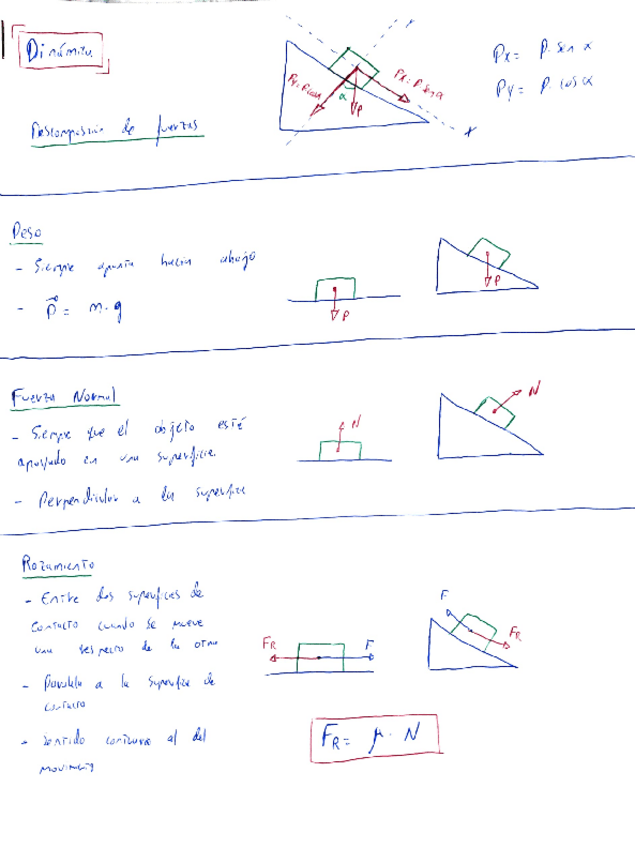 Dinámica
Py = P.cosα
Px = P.senα
α
P
x
Px = P. sen α
Py = P. cos α
Descomposición de fuerzas
Peso
- Siempre apunta hacia abajo
- P⃗ = m.g
P
P
Fuerza Normal
- Siempre que el objeto esté
apoyado en una superficie
- Perpendicular a la superficie
N
N
Rozamiento
- Entre dos superficies de
contacto cuando se mueve
una respecto de la otra
- Paralela a la superficie de
contacto
- Sentido contrario al del
movimiento
FR
F
F
FR
FR = μ. N